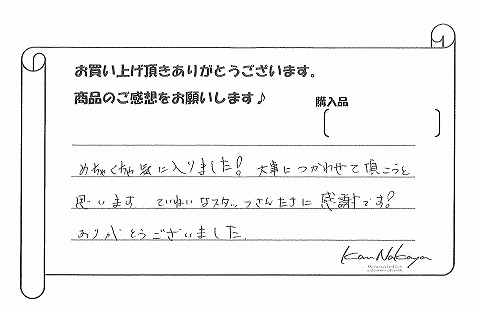 お買い上げ頂きありがとうございます。
商品のご感想をお願いします♪
購入品
めちゃくちゃ気に入りました! 大事につかわせて頂こうと
思います ていねいなスタ...っさんたちに 感謝です!
ありがとうございました
Kan Nakaya